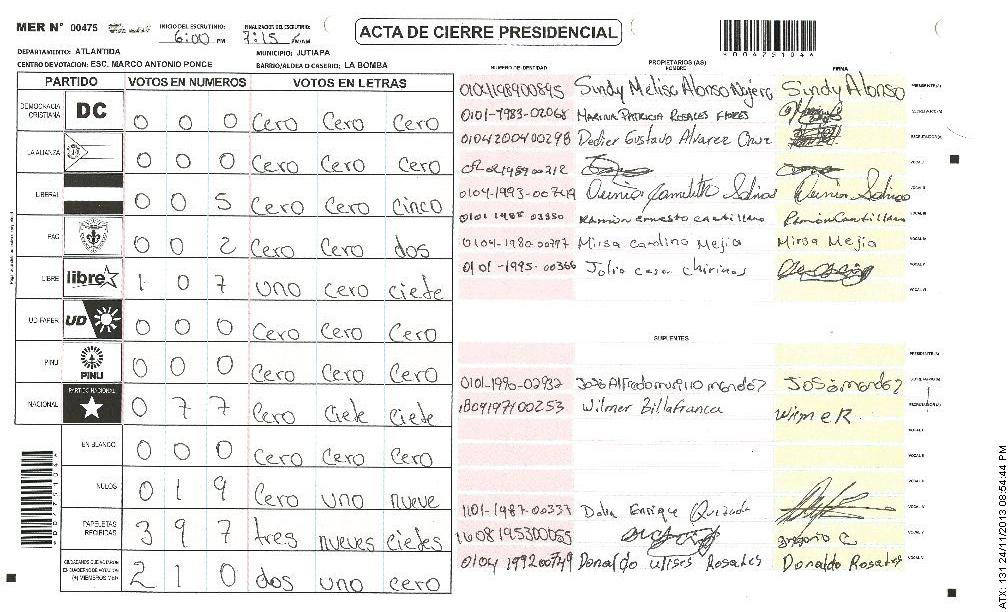 MER N° 00475 INICIO DEL ESCRUTINIO: 6:00 PM FINALIZACION DEL ESCRUTINIO: 7:15 PM/AM
ACTA DE CIERRE PRESIDENCIAL
*00475104*
DEPARTAMENTO: ATLANTIDA MUNICIPIO: JUTIAPA
CENTRO DE VOTACION: ESC. MARCO ANTONIO PONCE BARRIO/ALDEA O CASERIO: LA BOMBA
PARTIDO VOTOS EN NUMEROS VOTOS EN LETRAS
DEMOCRACIA CRISTIANA DC 0 0 0 Cero Cero Cero
LA ALIANZA 0 0 0 Cero Cero Cero
LIBERAL 0 0 5 Cero Cero Cinco
PAC 0 0 2 Cero Cero dos
LIBRE libre 1 0 7 uno cero ciete
UD-FAPER UD 0 0 0 Cero Cero Cero
PINU PINU 0 0 0 Cero Cero Cero
NACIONAL PARTIDO NACIONAL 0 7 7 Cero Ciete Ciete
EN BLANCO 0 0 0 Cero Cero Cero
NULOS 0 1 9 Cero uno nueve
PAPELETAS RECIBIDAS 3 9 7 tres nueves cietes
CIUDADANOS QUE VOTARON EN CUADERNO DE VOTACION (+) MIEMBROS MER 2 1 0 dos uno cero
PROPIETARIOS (AS)
NUMERO DE IDENTIDAD NOMBRE FIRMA
0104198900895 Sindy Melisa Alonso Najera Sindy Alonso PRESIDENTE(A)
0101-1983-02068 MARINA PATRICIA ROSALES FLORES SECRETARIO(A)
0104200400298 Dedier Gustavo Alvarez Cruz ESCRUTADOR(A)
VOCAL I
0104-1993-00749 Salinas VOCAL II
0101 1985 03350 Ramón ernesto cantillano Ramón Cantillano VOCAL III
0104-1980-00797 Mirsa Cardina Mejia Mirsa Mejia VOCAL IV
0101-1995-00366 Jolio cesar chirinos VOCAL V
VOCAL VI
SUPLENTES
PRESIDENTE(A)
0101-1990-02932 José Alfredo murillo mendéz José mendéz SECRETARIO(A)
1804197100253 Wilmer Billafranca ESCRUTADOR(A)
VOCAL I
VOCAL II
VOCAL III
1101-1987-00337 Enrique Quezada VOCAL IV
1608195300065 gregorio C. VOCAL V
0104 199200749 Donaldo ulises Rosales Donaldo Rosales VOCAL VI
ATX: 131 24/11/2013 08:54:44 PM